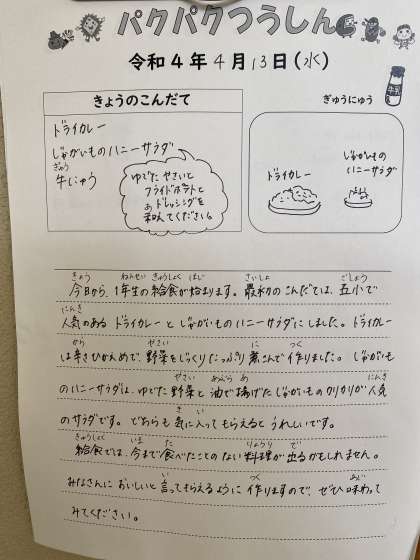 パクパクつうしん
令和4年4月13日(水)
きょうのこんだて
ドライカレー
じゃがいものハニーサラダ
ぎゅう
牛にゅう
ゆでた やさいと
フライドポテトと
ドレッシングを
和えてください。
ぎゅうにゅう
牛乳
ドライカレー
じゃがいもの
ハニーサラダ
きょう ねんせい きゅうしょく はじ さいしょ ごしょう
今日から、1年生の給食が始まります。最初のこんだては、五小で
にんき
人気のある ドライカレーと じゃがいものハニーサラダにしました。ドライカレー
から やさい に つく
は辛さひかえめで、野菜をじっくりたっぷり煮こんで作りました。じゃがいも
やさい あぶら あ にんき
のハニーサラダは、ゆでた野菜と油で揚げたじゃがいものカリカリが人気
き い
のサラダです。どちらも気に入ってもらえると うれしいです。
きゅうしょく いま た りょうり で
給食では、今まで食べたことのない料理が出るかもしれません。
い つく あじ
みなさんにおいしいと言ってもらえるように作りますので、ぜひ味わって
みてください。